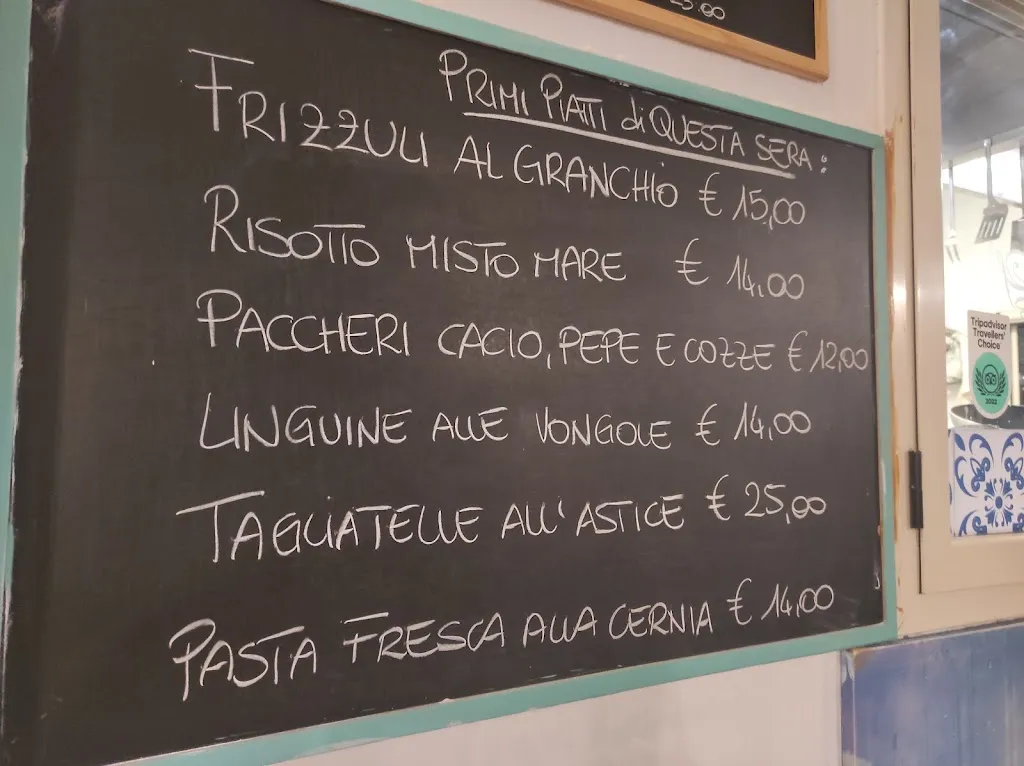 25.00
PRIMI PIATTI di QUESTA SERA:
FRIZZULI AL GRANCHIO € 15,00
RISOTTO MISTO MARE € 14,00
PACCHERI CACIO, PEPE E COZZE € 12,00
LINGUINE ALLE VONGOLE € 14,00
TAGLIATELLE ALL'ASTICE € 25,00
PASTA FRESCA ALLA CERNIA € 14,00
Tripadvisor
Travellers'
Choice
2022